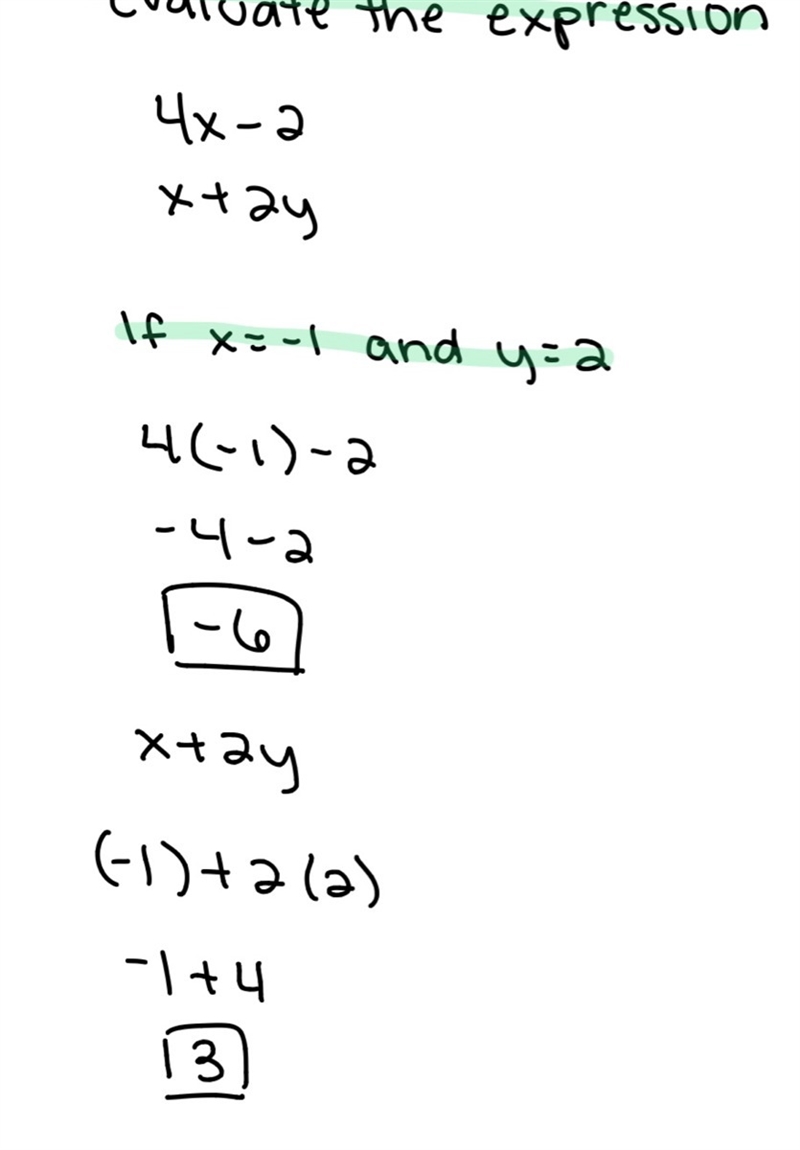 evaluate the expression
4x-2
x+2y
If x=-1 and y=2
4(-1)-2
-4-2
-6
x+2y
(-1)+2(2)
-1+4
3